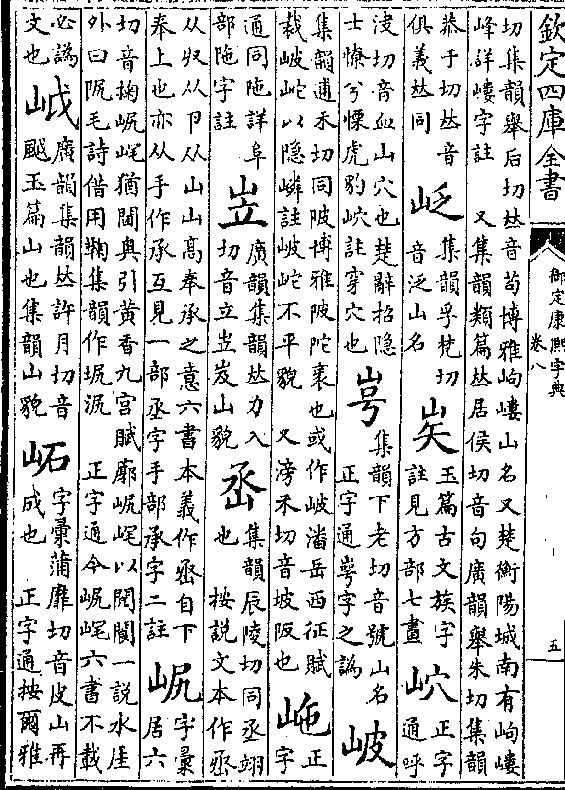 欽定四庫全書
御定康熙字典
卷八
五
切集韻舉后切𠀤音苟博雅岣嶁山名又楚衡陽城南有岣嶁
峰詳嶁字註 又集韻類篇𠀤居侯切音句廣韻舉朱切集韻
恭于切𠀤音
俱義𠀤同
集韻孚梵切
音泛山名
玉篇古文族字
註見方部七畫
岤
正字
通呼
決切音血山穴也楚辭招隱
士憭兮慄虎豹岤註穿穴也
集韻下老切音號山名
正字通字之譌
岥
集韻逋禾切同陂博雅陂陀衺也或作岥潘岳西征賦
裁岥岮以隱嶙註岥岮不平貌 又滂禾切音坡阪也
正
字
通同陁詳阜
部陁字註
岦
廣韻集韻𠀤力入
切音立岦岌山貌
丞
集韻辰陵切同丞翊
也 按說文本作丞
从収从卪从山山高奉承之意六書本義作丞自下
奉上也亦从手作承互見一部丞字手部承字二註
字彙
居六
切音掬猶閫奧引黃香九宮賦廓以閎閬一說水厓
外曰毛詩借用鞫集韻作 正字通今六書不載
必譌
文也
廣韻集韻𠀤許月切音
䬂玉篇山也集韻山貌
字彙蒲靡切音皮山再
成也 正字通按爾雅